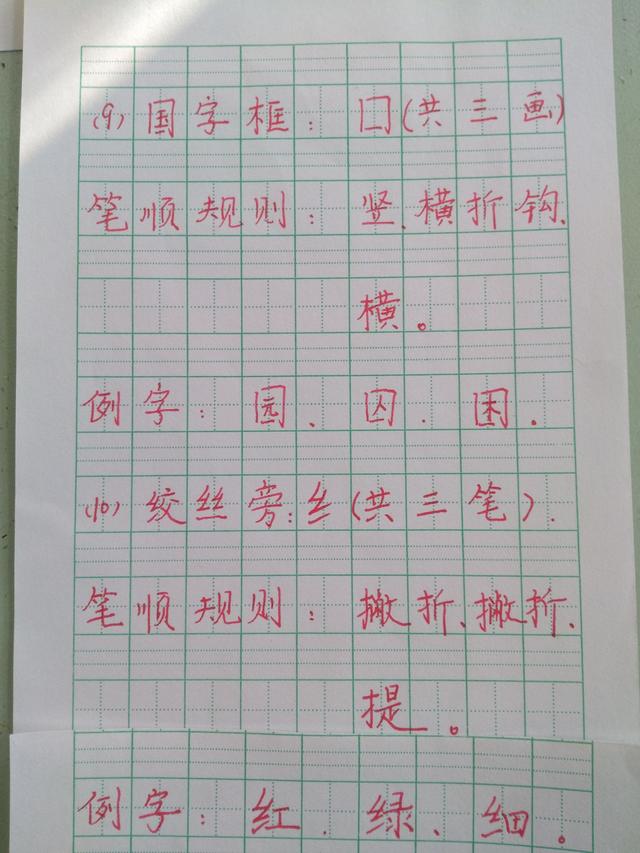 (9) 国字框：囗(共三画)
笔顺规则：竖、横折钩、
横。
例字：园、囚、困.
(10) 绞丝旁：纟(共三笔).
笔顺规则：撇折、撇折、
提。
例字：红、绿、细。